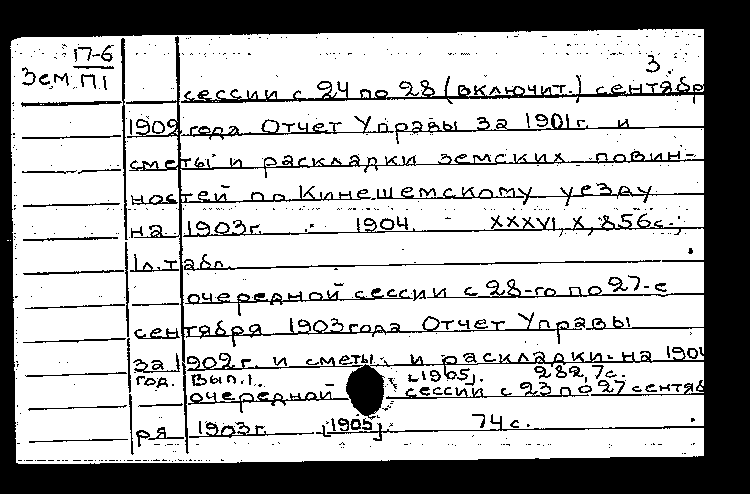 П-6
3.
Зем. П.1
сессии с 24 по 28 (включит.) сентябр
1902 года Отчет Управы за 1901г. и
сметы и раскладки земских повин-
ностей по Кинешемскому уезду
на 1903г. - 1904. - XXXVI, X, 856с.;
1л.табл.
очередной сессии с 28-го по 27-е
сентября 1903 года Отчет Управы
за 1902г. и сметы и раскладки на 1904
год. Вып.1. [1905]. 282, 7с.
очередной сессии с 23 по 27 сентяб
ря 1903г. [1905]. 74с.